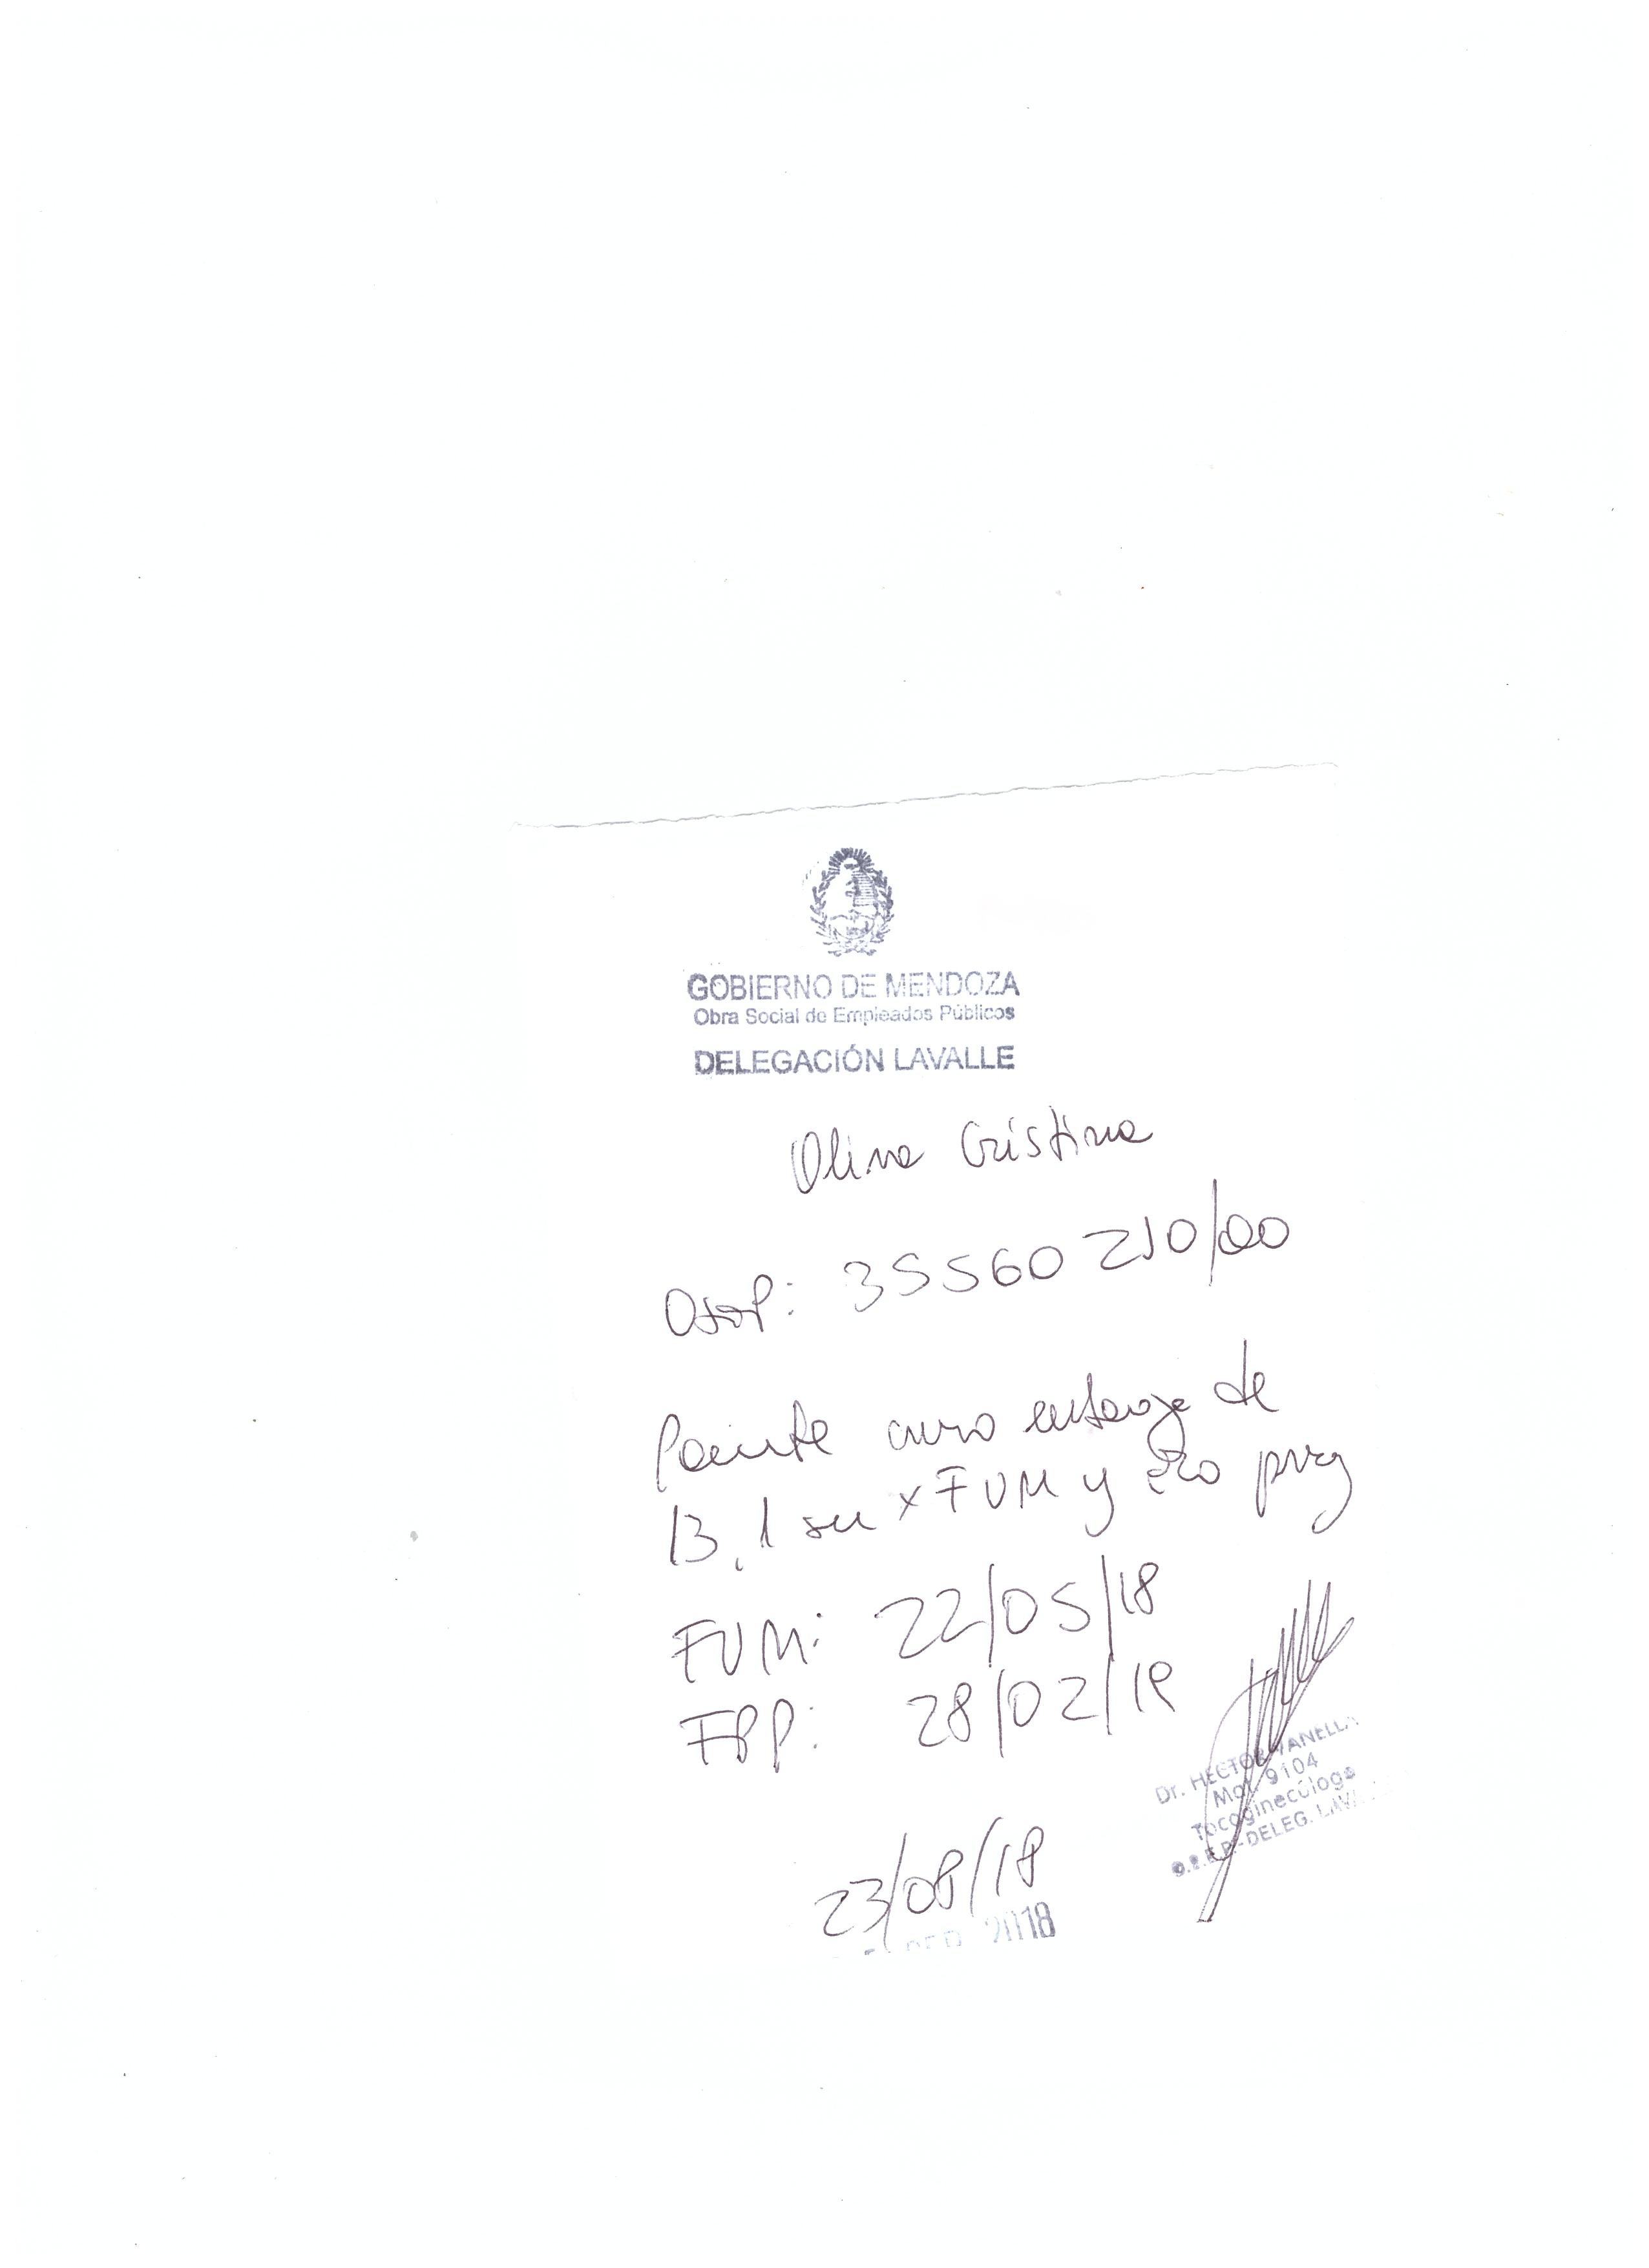 GOBIERNO DE MENDOZA
Obra Social de Empleados Públicos
DELEGACIÓN LAVALLE
Cristina
Osep: 35560210/00
Paciente cursa embarazo de
13,1 sem x FUM y eco prog
FUM: 22/05/18
FPP: 28/02/19
Dr. HECTOR VANELLA
Mat. 9104
Tocoginecólogo
O.S.E.P.-DELEG.
23/08/18
2018